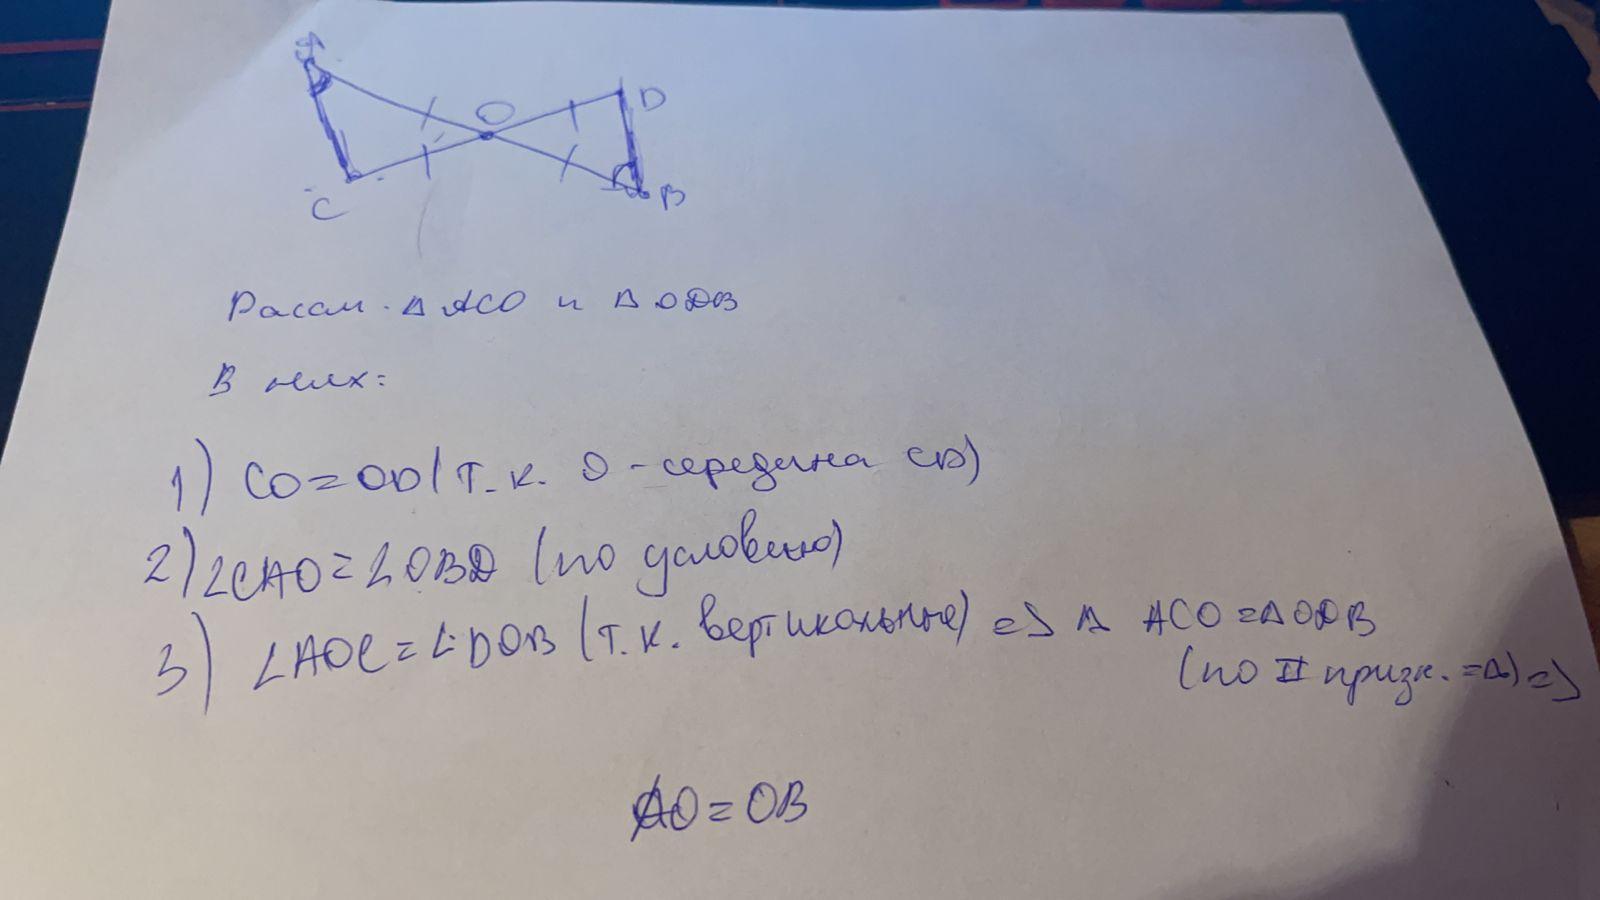 A
O
D
C
B
Рассм. Δ ACO и Δ ODB
В них:
1) CO=OD (т.к. O - середина CD)
2) ∠CAO=∠OBD (по условию)
3) ∠AOC=∠DOB (т.к. вертикальные) => Δ ACO=ΔODB
(по II призн. =Δ) =>
AO=OB